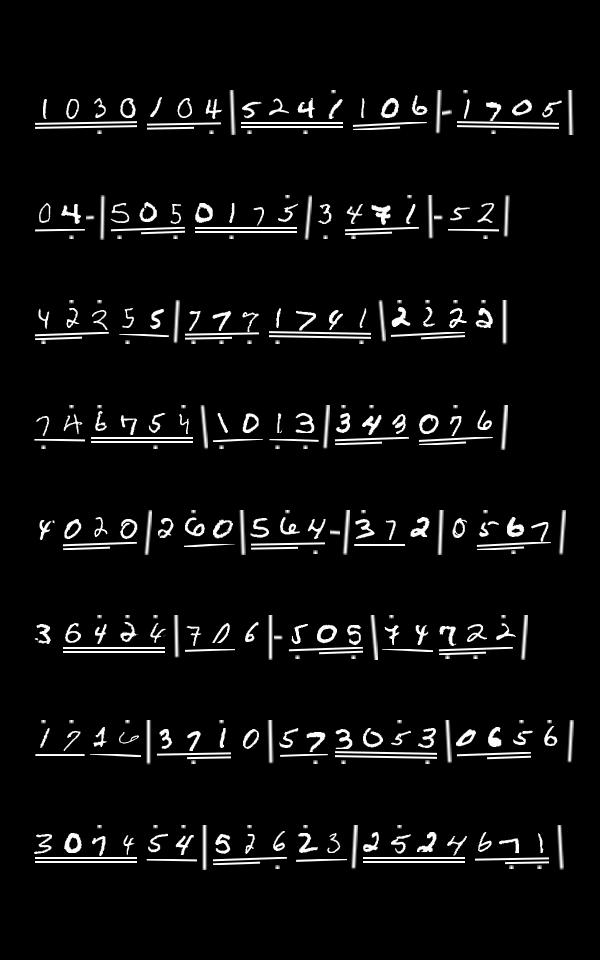 1030104|5241106|-1705|
04-|5050175|3471|-52|
42255|7771741|2222|
746754|1013|343076|
4020|260|564-|372|0567|
36424|706|-505|747722|
1716|3710|573053|0656|
307454|52623|2524671|